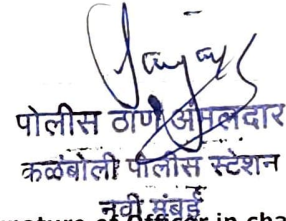 पोलीस ठाणे अंमलदार
कळंबोली पोलीस स्टेशन
नवी मुंबई
Signature of Officer in cha